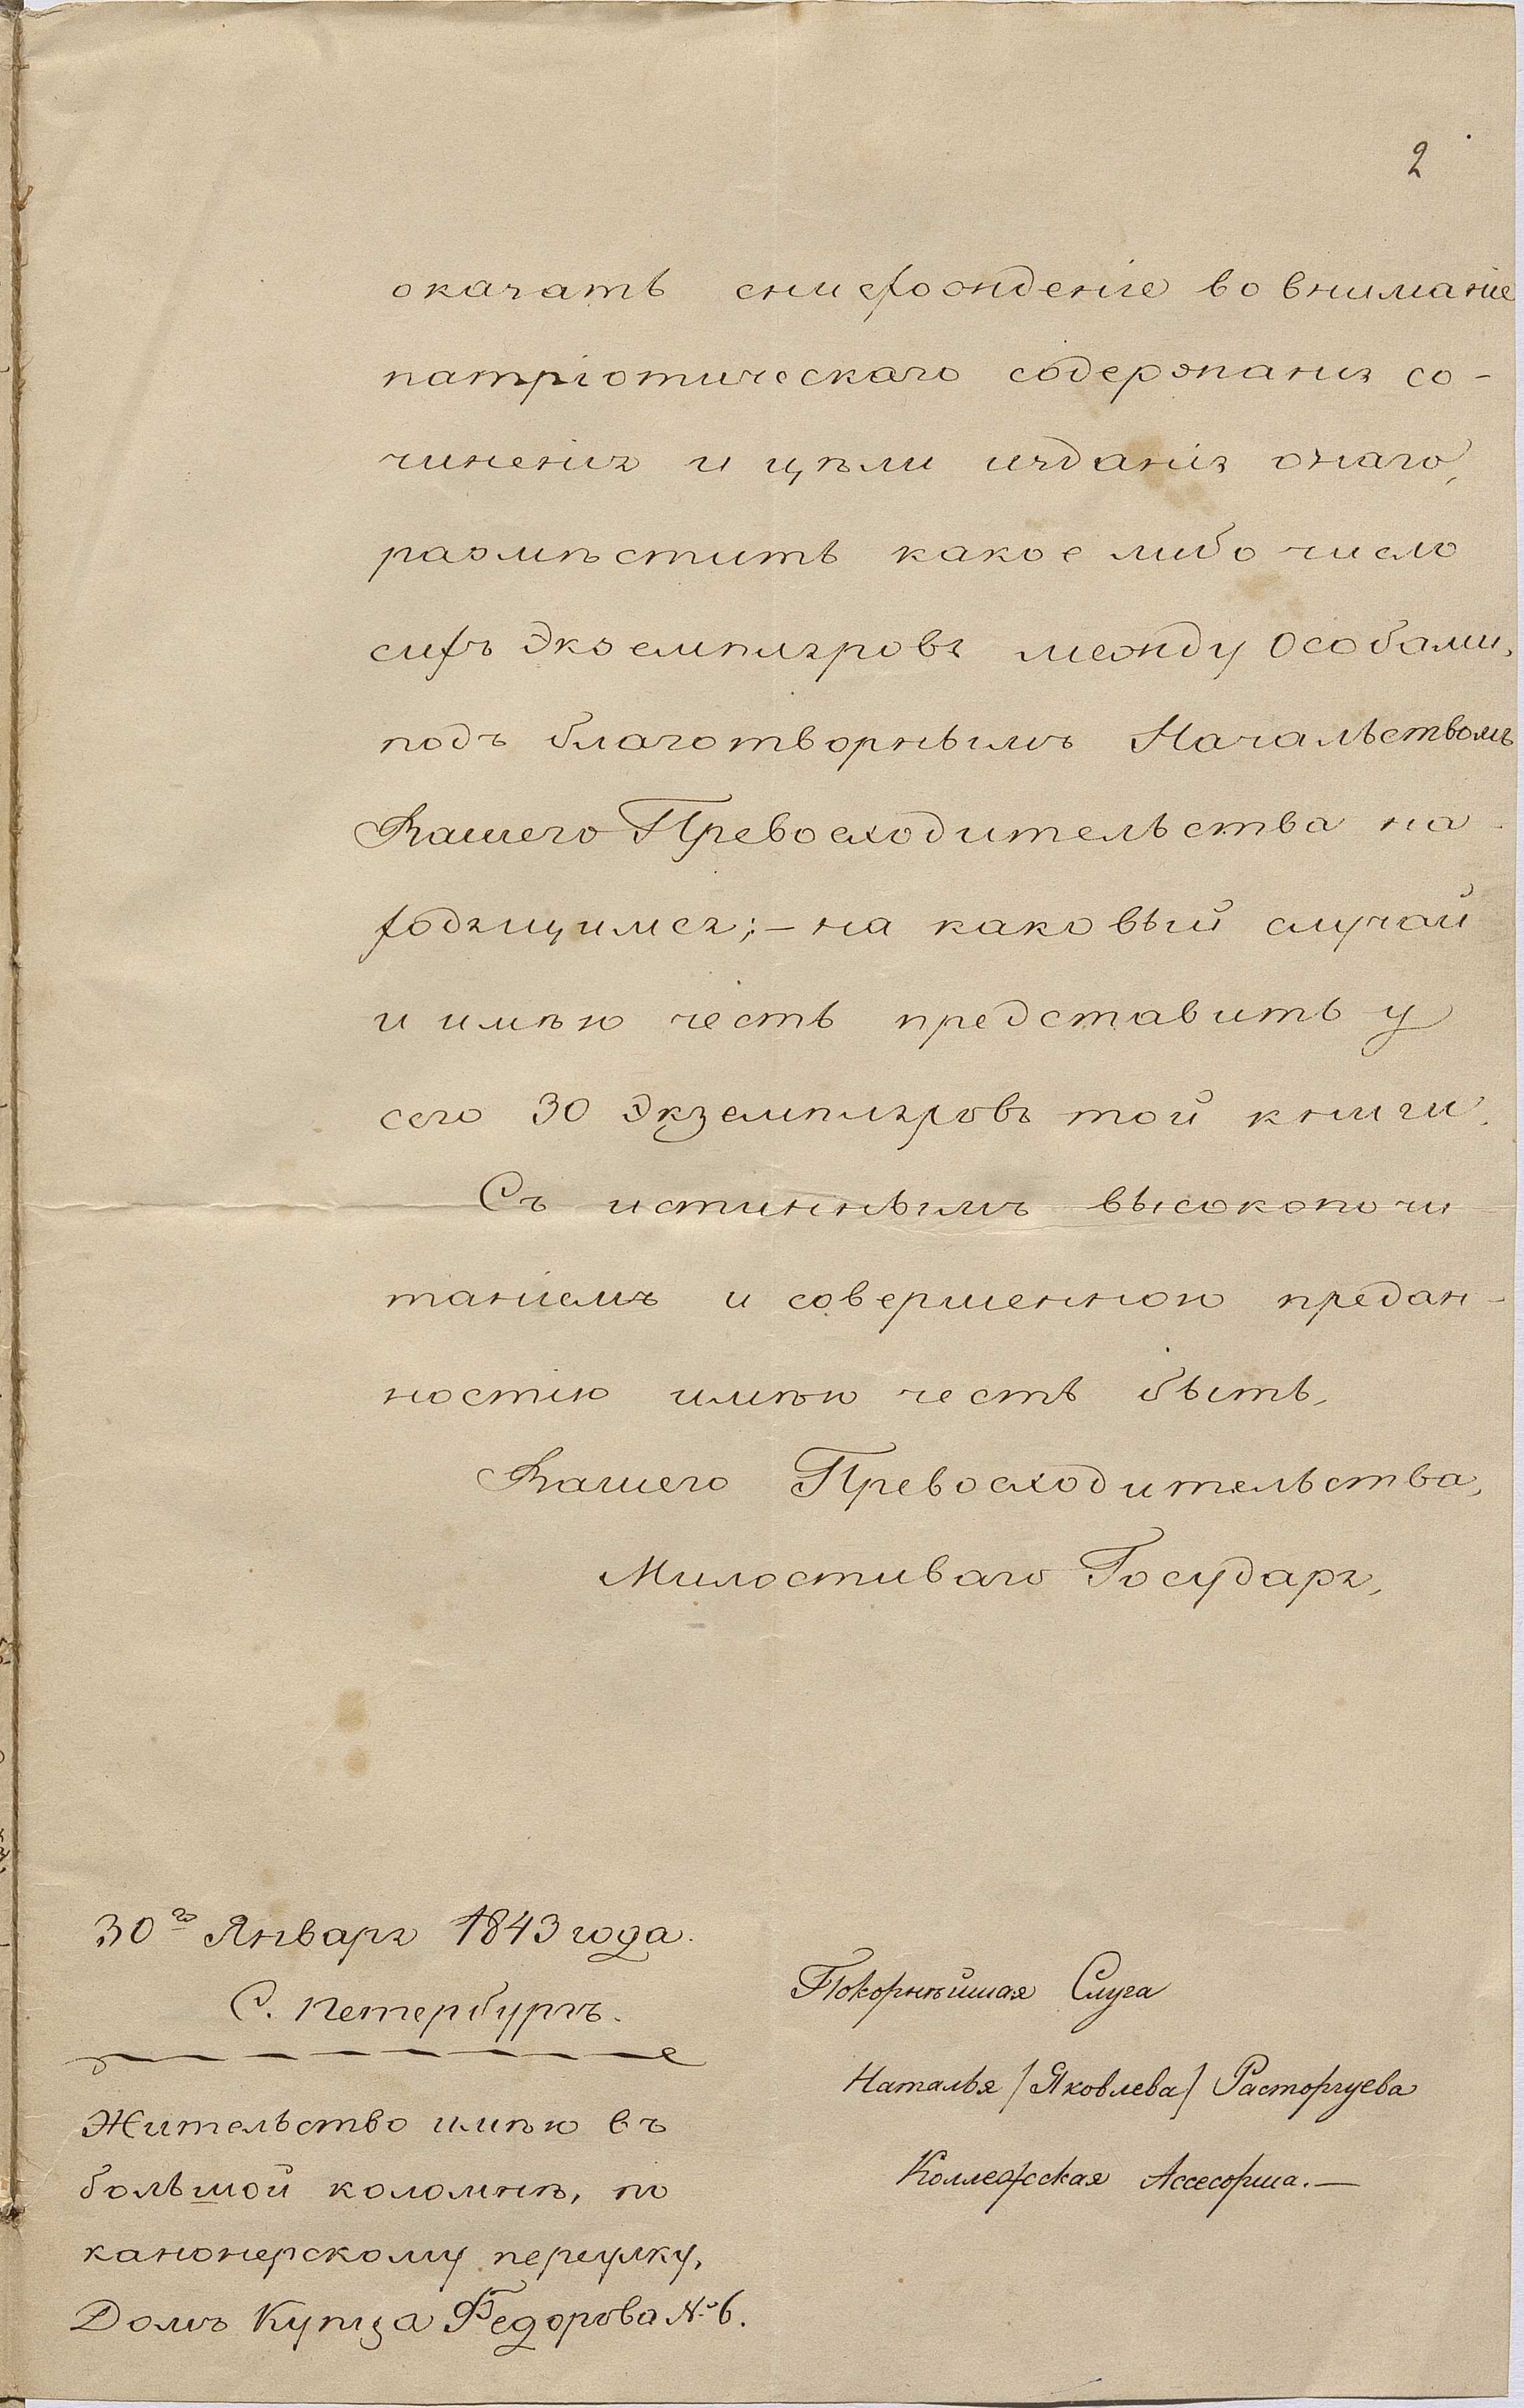 2
оказать снисхожденіе во вниманіе
патріотическаго содержанія со-
чиненія и цѣли изданія онаго,
размѣстить какое либо число
сихъ экземпляровъ между Особами,
подъ благотворнымъ Начальствомъ
Вашего Превосходительства на-
ходящимся; - на каковый случай
и имѣю честь представить у
сего 30 экземпляровъ той книги.
Съ истиннымъ высокопочи
таніемъ и совершенною предан-
ностію имѣю честь быть,
Вашего Превосходительства,
Милостиваго Государя,
30го Января 1843 года.
С. Петербургъ.
Жительство имѣю въ
большой коломнѣ, по
канонерскому переулку,
Домъ Купца Федорова № 6.
Покорнѣйшая Слуга
Наталья /Яковлева/ Расторгуева
Коллежская Ассесорша. —